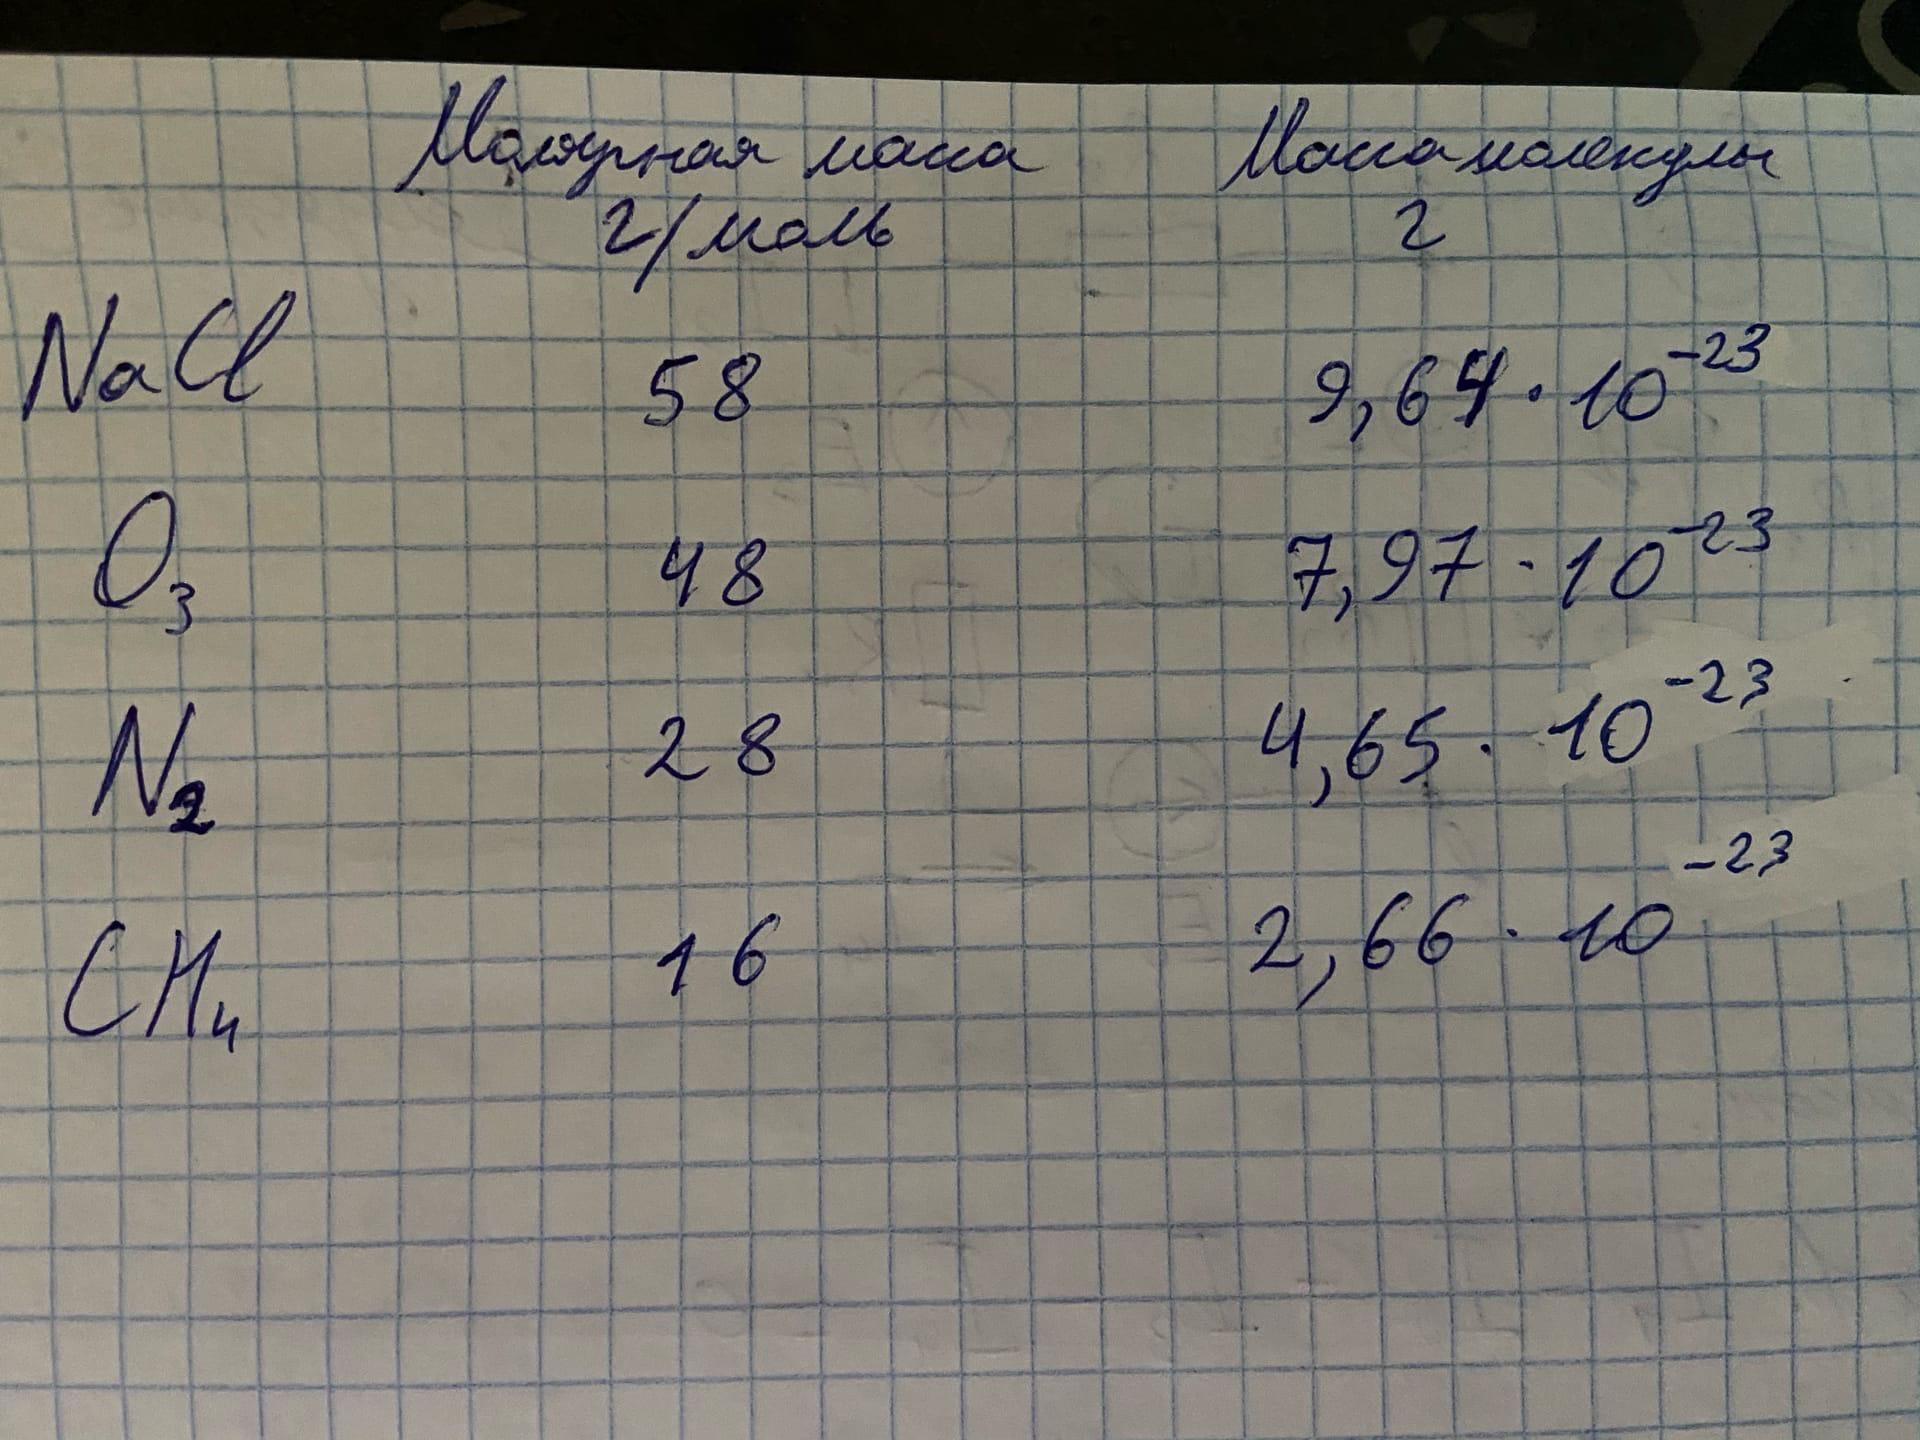 Молярная масса Масса молекулы
г/моль г
NaCl 58 9,64 · 10⁻²³
O₃ 48 7,97 · 10⁻²³
N₂ 28 4,65 · 10⁻²³
CH₄ 16 2,66 · 10⁻²³